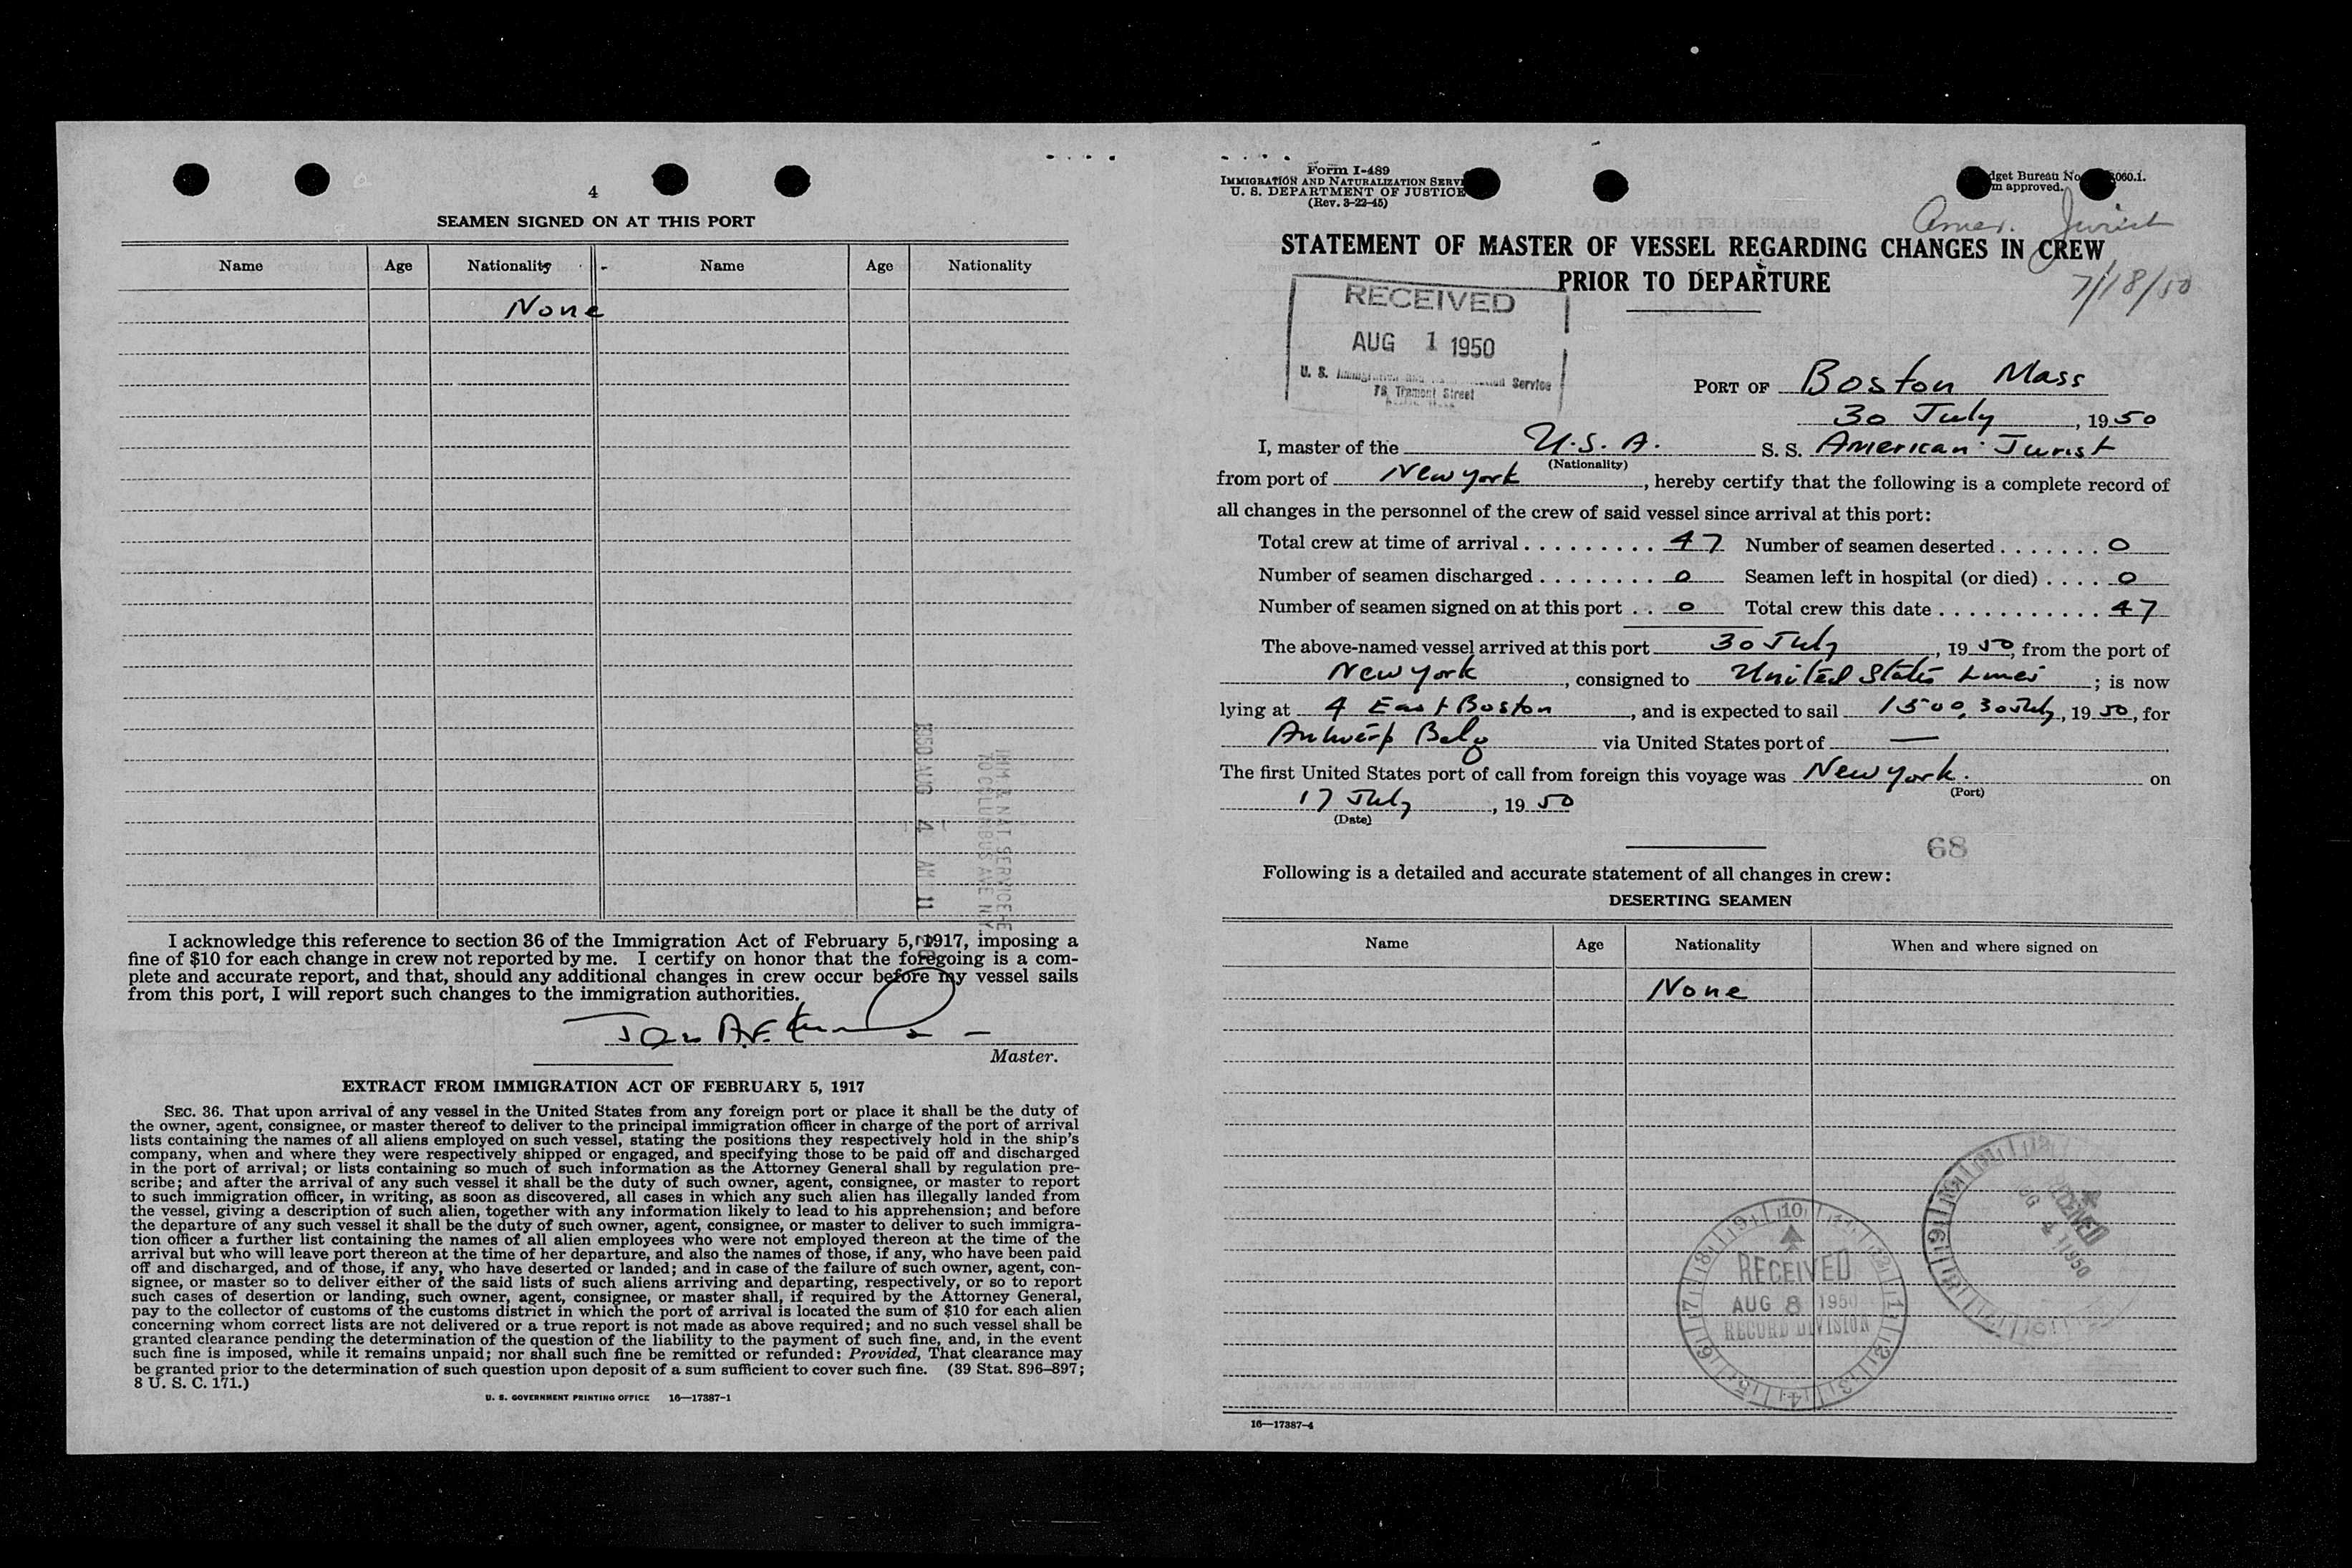 4
SEAMEN SIGNED ON AT THIS PORT
Name Age Nationality Name Age Nationality
None
1950 AUG 4 AM 11
IMM & NAT SERVICE
70 COLUMBUS AVE N.Y.
I acknowledge this reference to section 36 of the Immigration Act of February 5, 1917, imposing a
fine of $10 for each change in crew not reported by me. I certify on honor that the foregoing is a com-
plete and accurate report, and that, should any additional changes in crew occur before my vessel sails
from this port, I will report such changes to the immigration authorities.
Master.
EXTRACT FROM IMMIGRATION ACT OF FEBRUARY 5, 1917
SEC. 36. That upon arrival of any vessel in the United States from any foreign port or place it shall be the duty of
the owner, agent, consignee, or master thereof to deliver to the principal immigration officer in charge of the port of arrival
lists containing the names of all aliens employed on such vessel, stating the positions they respectively hold in the ship's
company, when and where they were respectively shipped or engaged, and specifying those to be paid off and discharged
in the port of arrival; or lists containing so much of such information as the Attorney General shall by regulation pre-
scribe; and after the arrival of any such vessel it shall be the duty of such owner, agent, consignee, or master to report
to such immigration officer, in writing, as soon as discovered, all cases in which any such alien has illegally landed from
the vessel, giving a description of such alien, together with any information likely to lead to his apprehension; and before
the departure of any such vessel it shall be the duty of such owner, agent, consignee, or master to deliver to such immigra-
tion officer a further list containing the names of all alien employees who were not employed thereon at the time of the
arrival but who will leave port thereon at the time of her departure, and also the names of those, if any, who have been paid
off and discharged, and of those, if any, who have deserted or landed; and in case of the failure of such owner, agent, con-
signee, or master so to deliver either of the said lists of such aliens arriving and departing, respectively, or so to report
such cases of desertion or landing, such owner, agent, consignee, or master shall, if required by the Attorney General,
pay to the collector of customs of the customs district in which the port of arrival is located the sum of $10 for each alien
concerning whom correct lists are not delivered or a true report is not made as above required; and no such vessel shall be
granted clearance pending the determination of the question of the liability to the payment of such fine, and, in the event
such fine is imposed, while it remains unpaid; nor shall such fine be remitted or refunded: Provided, That clearance may
be granted prior to the determination of such question upon deposit of a sum sufficient to cover such fine. (39 Stat. 896–897;
8 U. S. C. 171.)
U. S. GOVERNMENT PRINTING OFFICE 16—17387-1
Form I-489
IMMIGRATION AND NATURALIZATION SERVI
U. S. DEPARTMENT OF JUSTICE
(Rev. 3-22-45)
dget Bureau No 060.1.
m approved.
Amer. Jurist
STATEMENT OF MASTER OF VESSEL REGARDING CHANGES IN CREW
PRIOR TO DEPARTURE
7/18/50
RECEIVED
AUG 1 1950
U. S. Immigration and Service
73 Tremont Street
PORT OF Boston Mass
30 July, 1950
I, master of the U.S.A. S. S. American Jurist
(Nationality)
from port of New york, hereby certify that the following is a complete record of
all changes in the personnel of the crew of said vessel since arrival at this port:
Total crew at time of arrival . . . . . . . . . 47 Number of seamen deserted . . . . . . . 0
Number of seamen discharged . . . . . . . . 0 Seamen left in hospital (or died) . . . . 0
Number of seamen signed on at this port . . 0 Total crew this date . . . . . . . . . . . 47
The above-named vessel arrived at this port 30 July, 1950, from the port of
New york, consigned to United States Lines; is now
lying at 4 East Boston, and is expected to sail 1500, 30 July, 1950, for
Antwerp Belg via United States port of —
The first United States port of call from foreign this voyage was New york. on
(Port)
17 July, 1950
(Date)
68
Following is a detailed and accurate statement of all changes in crew:
DESERTING SEAMEN
Name Age Nationality When and where signed on
None
RECEIVED
AUG 8 1950
RECORD DIVISION
RECEIVED
4 1950
16—17387-4